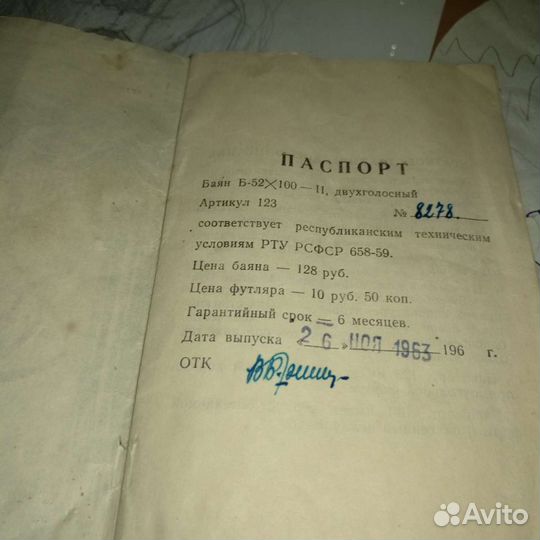 ПАСПОРТ
Баян Б-52×100—II, двухголосный
Артикул 123 № 8278
соответствует республиканским техническим
условиям РТУ РСФСР 658-59.
Цена баяна — 128 руб.
Цена футляра — 10 руб. 50 коп.
Гарантийный срок — 6 месяцев.
Дата выпуска « 26 » НОЯ 1963 196 г.
ОТК
Avito